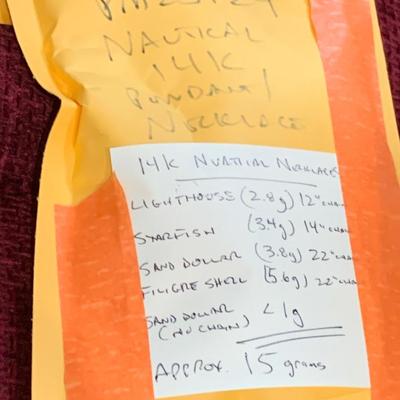 NAUTICAL
14K
PENDANT/
NECKLACE
14K NUATICAL NECKLACES
LIGHTHOUSE (2.8g) 12" CHAIN
STARFISH (3.4g) 14" CHAIN
SAND DOLLAR (3.8g) 22" CHAIN
FILIGRE SHELL (5.6g) 22" CHAIN
SAND DOLLAR <1g
(NO CHAIN)
APPROX. 15 grams